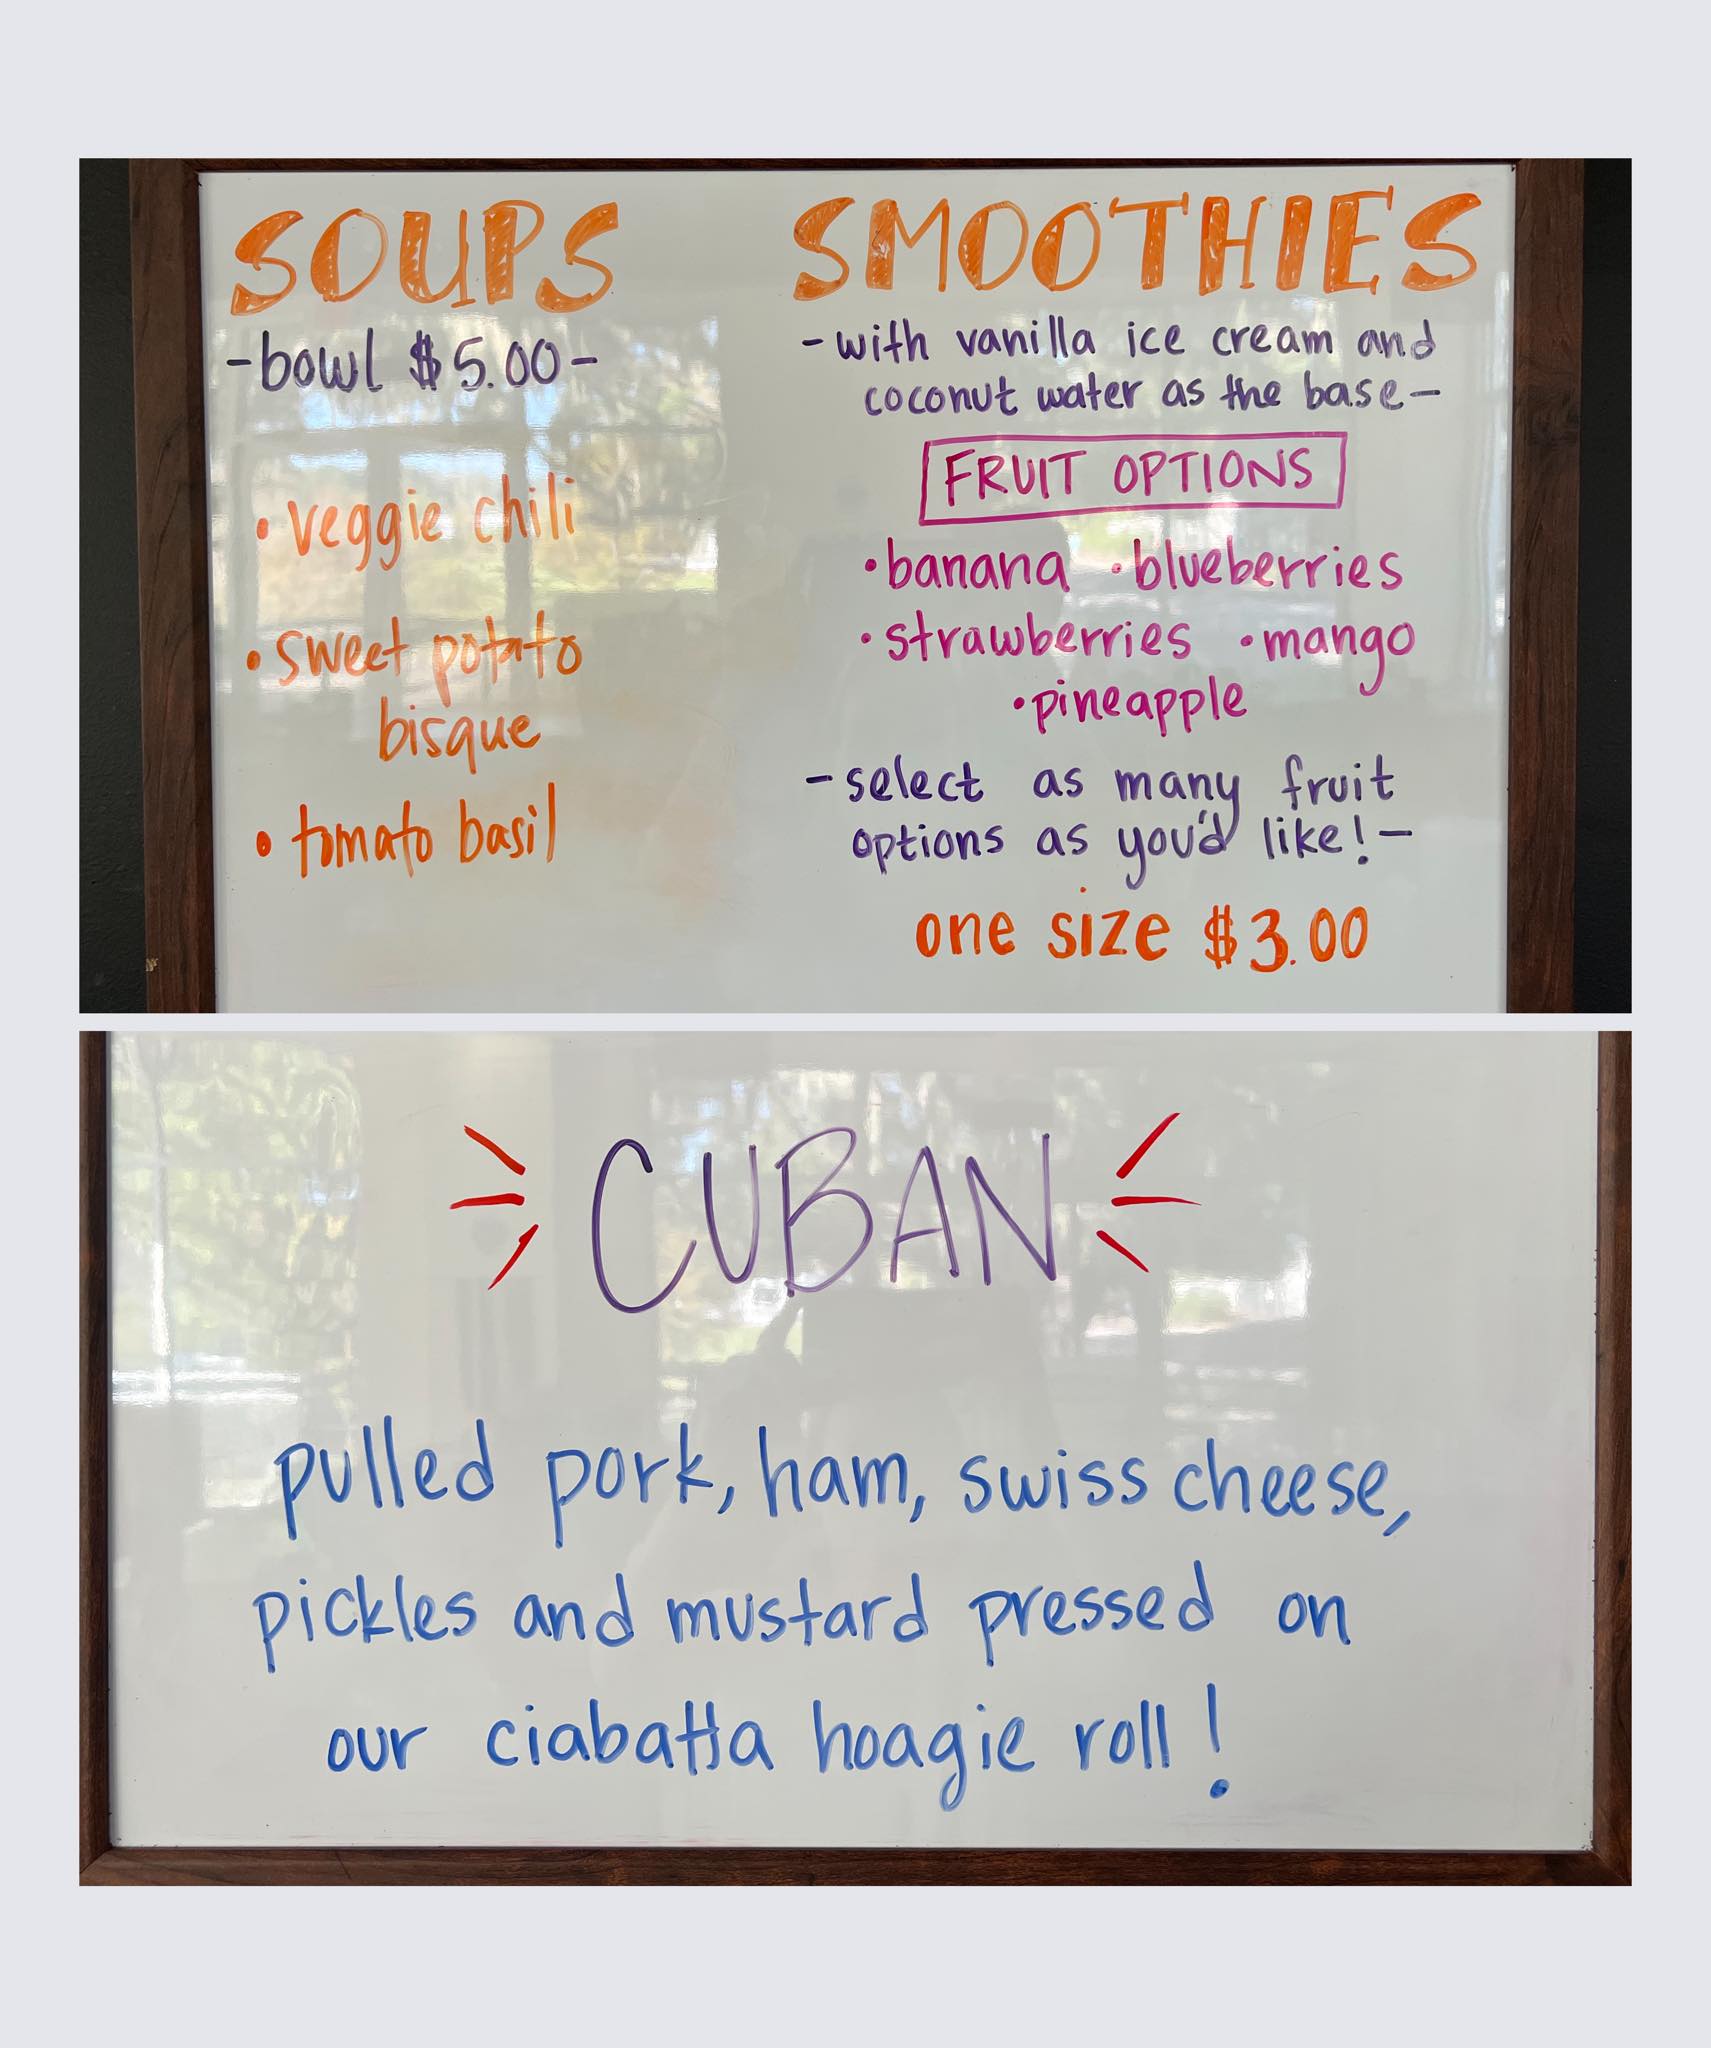 SOUPS
-bowl $5.00-
• veggie chili
• sweet potato
bisque
• tomato basil
SMOOTHIES
-with vanilla ice cream and
coconut water as the base-
FRUIT OPTIONS
•banana •blueberries
•strawberries •mango
•pineapple
-select as many fruit
options as you'd like!-
one size $3.00
CUBAN
pulled pork, ham, swiss cheese,
pickles and mustard pressed on
our ciabatta hoagie roll!